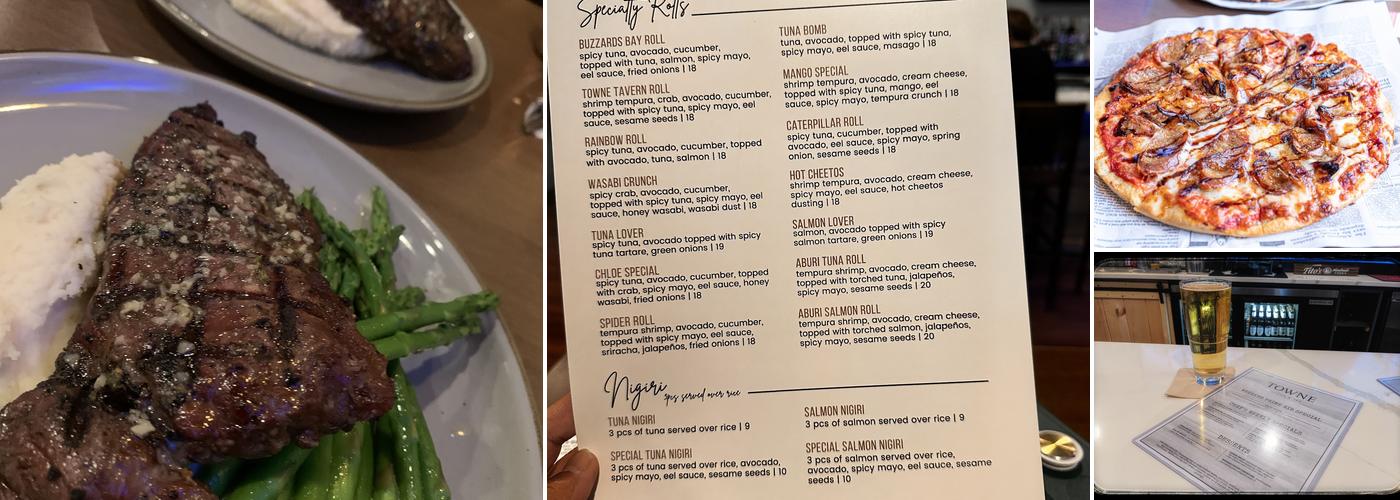 Specialty Rolls
BUZZARDS BAY ROLL
spicy tuna, avocado, cucumber,
topped with tuna, salmon, spicy mayo,
eel sauce, fried onions | 18
TOWNE TAVERN ROLL
shrimp tempura, crab, avocado, cucumber,
topped with spicy tuna, spicy mayo, eel
sauce, sesame seeds | 18
RAINBOW ROLL
spicy tuna, avocado, cucumber, topped
with avocado, tuna, salmon | 18
WASABI CRUNCH
spicy crab, avocado, cucumber,
topped with spicy tuna, spicy mayo, eel
sauce, honey wasabi, wasabi dust | 18
TUNA LOVER
spicy tuna, avocado topped with spicy
tuna tartare, green onions | 19
CHLOE SPECIAL
spicy tuna, avocado, cucumber, topped
with crab, spicy mayo, eel sauce, honey
wasabi, fried onions | 18
SPIDER ROLL
tempura shrimp, avocado, cucumber,
topped with spicy mayo, eel sauce,
sriracha, jalapeños, fried onions | 18
TUNA BOMB
tuna, avocado, topped with spicy tuna,
spicy mayo, eel sauce, masago | 18
MANGO SPECIAL
shrimp tempura, avocado, cream cheese,
topped with spicy tuna, mango, eel
sauce, spicy mayo, tempura crunch | 18
CATERPILLAR ROLL
spicy tuna, cucumber, topped with
avocado, eel sauce, spicy mayo, spring
onion, sesame seeds | 18
HOT CHEETOS
shrimp tempura, avocado, cream cheese,
spicy mayo, eel sauce, hot cheetos
dusting | 18
SALMON LOVER
salmon, avocado topped with spicy
salmon tartare, green onions | 19
ABURI TUNA ROLL
tempura shrimp, avocado, cream cheese,
topped with torched tuna, jalapeños,
spicy mayo, sesame seeds | 20
ABURI SALMON ROLL
tempura shrimp, avocado, cream cheese,
topped with torched salmon, jalapeños,
spicy mayo, sesame seeds | 20
Nigiri 3pcs served over rice
TUNA NIGIRI
3 pcs of tuna served over rice | 9
SPECIAL TUNA NIGIRI
3 pcs of tuna served over rice, avocado,
spicy mayo, eel sauce, sesame seeds | 10
SALMON NIGIRI
3 pcs of salmon served over rice | 9
SPECIAL SALMON NIGIRI
3 pcs of salmon served over rice,
avocado, spicy mayo, eel sauce, sesame
seeds | 10
Tito's
TOWNE
PRIME RIB SPECIAL
SPECIALS
DESSERTS